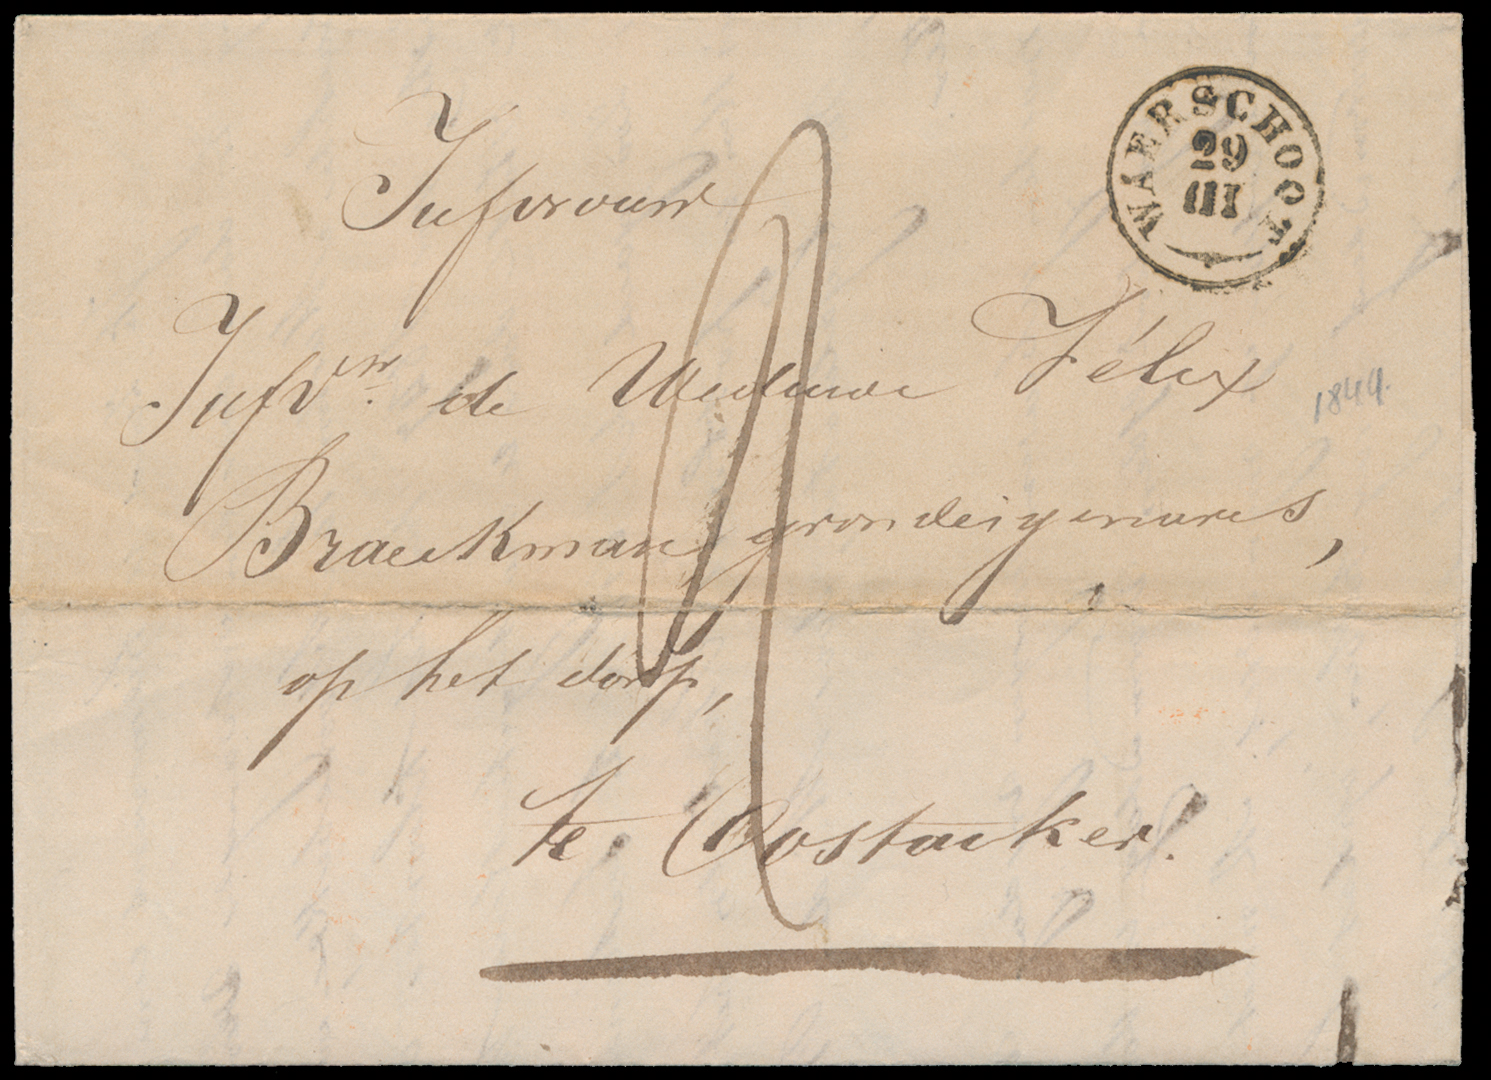 WAERSCHOOT
29
III
Jufvrouw
Jufvw. de Weduwe Félix
1844.
Braeckman grondeigenares,
op het dorp,
te Oostacker.